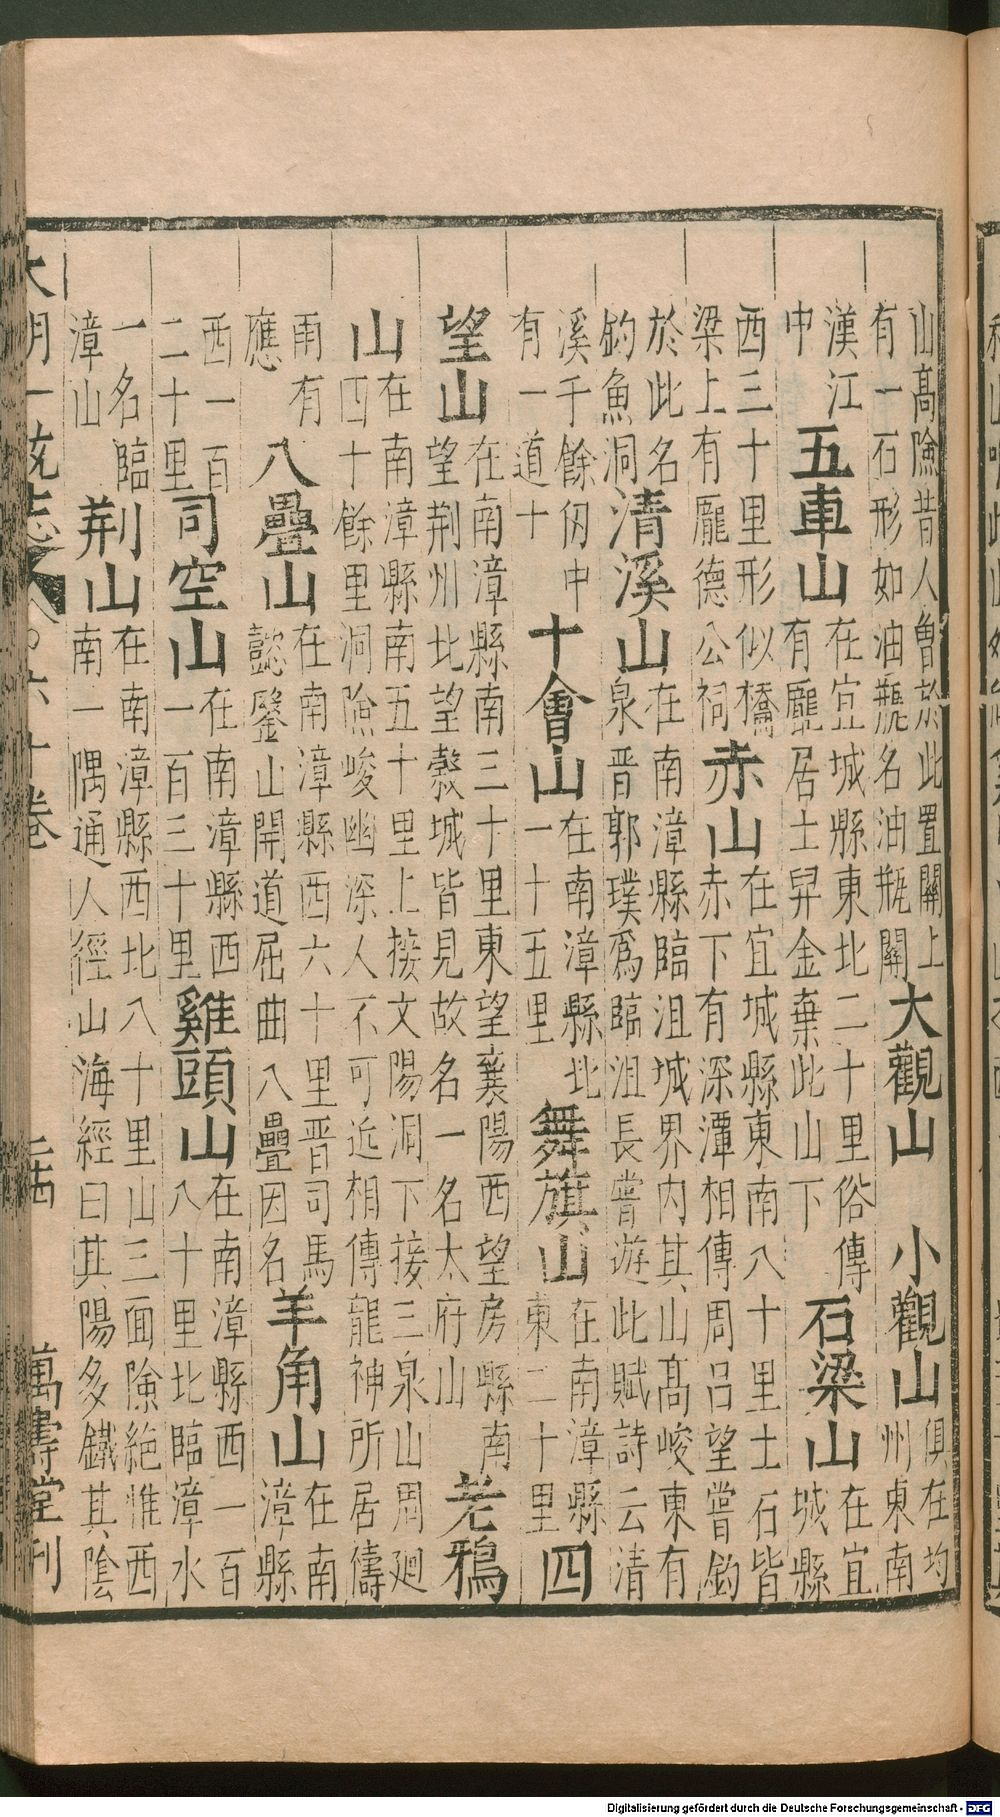 山髙險昔人魯於此置關上有一石形如油瓶名油瓶關大觀山 小觀山俱在均州東南
漢江中五車山在宜城縣東北二十里俗傳有龐居士舁金棄此山下石梁山在宜城縣
西三十里形似橋梁上有龐德公祠赤山在宜城縣東南八十里土石皆赤下有深潭相傳周吕望嘗釣
於此名釣魚洞清溪山在南漳縣臨沮城界内其山髙峻東有泉晋郭璞為臨沮長嘗遊此賦詩云清
溪千餘仭中有一道十十會山在南漳縣北一十五里舞旗山在南漳縣東二十里四
望山在南漳縣南三十里東望襄陽西望房縣南望荆州北望榖城皆見故名一名太府山老鴉
山在南漳縣南五十里上接文陽洞下接三泉山周廻四十餘里洞險峻幽深人不可近相傳龍神所居禱
雨有應八疊山在南漳縣西六十里晋司馬懿鑿山開道屈曲八疊因名羊角山在南漳縣
西一百二十里司空山在南漳縣西一百三十里雞頭山在南漳縣西一百八十里北臨漳水
一名臨漳山荆山在南漳縣西北八十里山三面險絶惟西南一隅通人經山海經曰其陽多鐵其陰
大明一統志 六十卷 萬壽堂刊
Digitalisierung gefördert durch die Deutsche Forschungsgemeinschaft - DFG